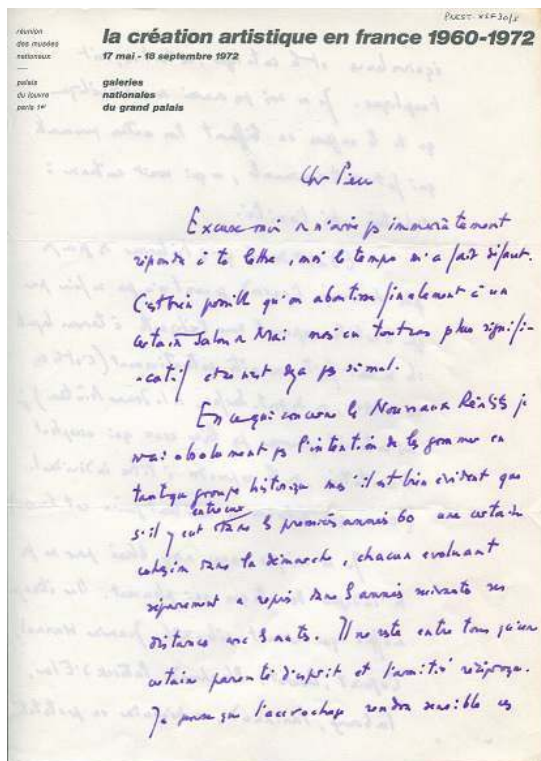 PREST. XSF30/5
réunion
des musées
nationaux
—
palais
du louvre
paris 1er
la création artistique en france 1960-1972
17 mai - 18 septembre 1972
galeries
nationales
du grand palais
Cher Pierre
Excuse moi de n'avoir pas immédiatement
répondu à ta lettre, mais le temps m'a fait défaut.
C'est bien possible qu'on aboutisse finalement à un
certain Salon de Mai mais en tout cas plus signifi-
-catif et ce n'est déjà pas si mal.
En ce qui concerne les Nouveaux Réalistes je
n'ai absolument pas l'intention de les gommer en
tant que groupe historique mais il est bien évident que
s'il y eut entre eux dans les premières années 60 une certaine
cohésion dans la démarche, chacun évoluant
séparément a repris dans les années suivantes ses
distances avec les autres. Il ne reste entre tous qu'une
certaine parenté d'esprit et l'amitié réciproque.
Je pense que l'accrochage rendra sensible ces